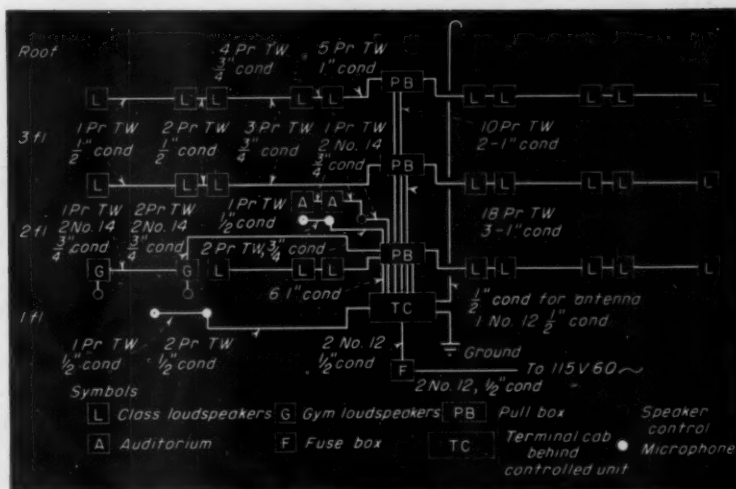 Roof
4 Pr TW 3/4" cond
5 Pr TW 1" cond
PB
L L L L L L L L L L
3 fl
1 Pr TW 1/2" cond
2 Pr TW 1/2" cond
3 Pr TW 3/4" cond
1 Pr TW 2 No. 14 3/4" cond
PB
10 Pr TW 2-1" cond
L L L L L L L L
A A
2 fl
1 Pr TW 2 No. 14 3/4" cond
2 Pr TW 2 No. 14 3/4" cond
1 Pr TW 1/2" cond
2 Pr TW, 3/4" cond
18 Pr TW 3-1" cond
G G L L L PB L L L L L
6 1" cond
TC
1/2" cond for antenna
1 No. 12 1/2" cond
1 fl
1 Pr TW 1/2" cond
2 Pr TW 1/2" cond
2 No. 12 1/2" cond
Ground
F
To 115V 60~
2 No. 12, 1/2" cond
Symbols
L Class loudspeakers
G Gym loudspeakers
PB Pull box
Speaker control
A Auditorium
F Fuse box
TC Terminal cab behind controlled unit
Microphone